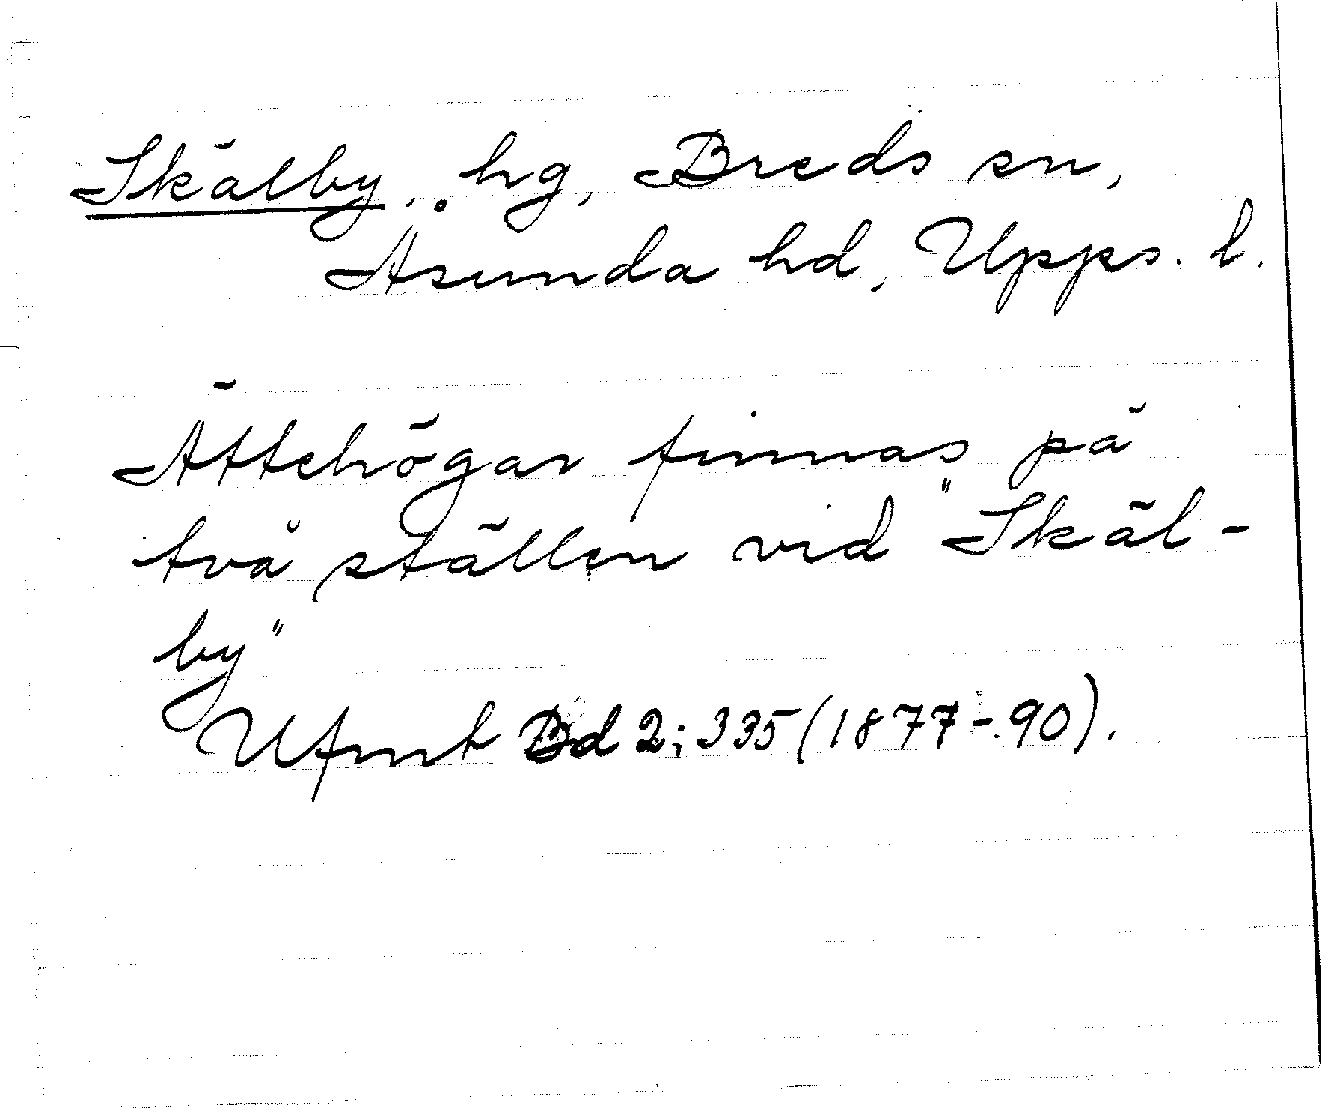 Skälby, hg, Breds sn,
Åsunda hd, Upps. l.
Ättehögar finnas på
två ställen vid "Skäl-
by"
Ufmt Bd 2; 335 (1877-90).